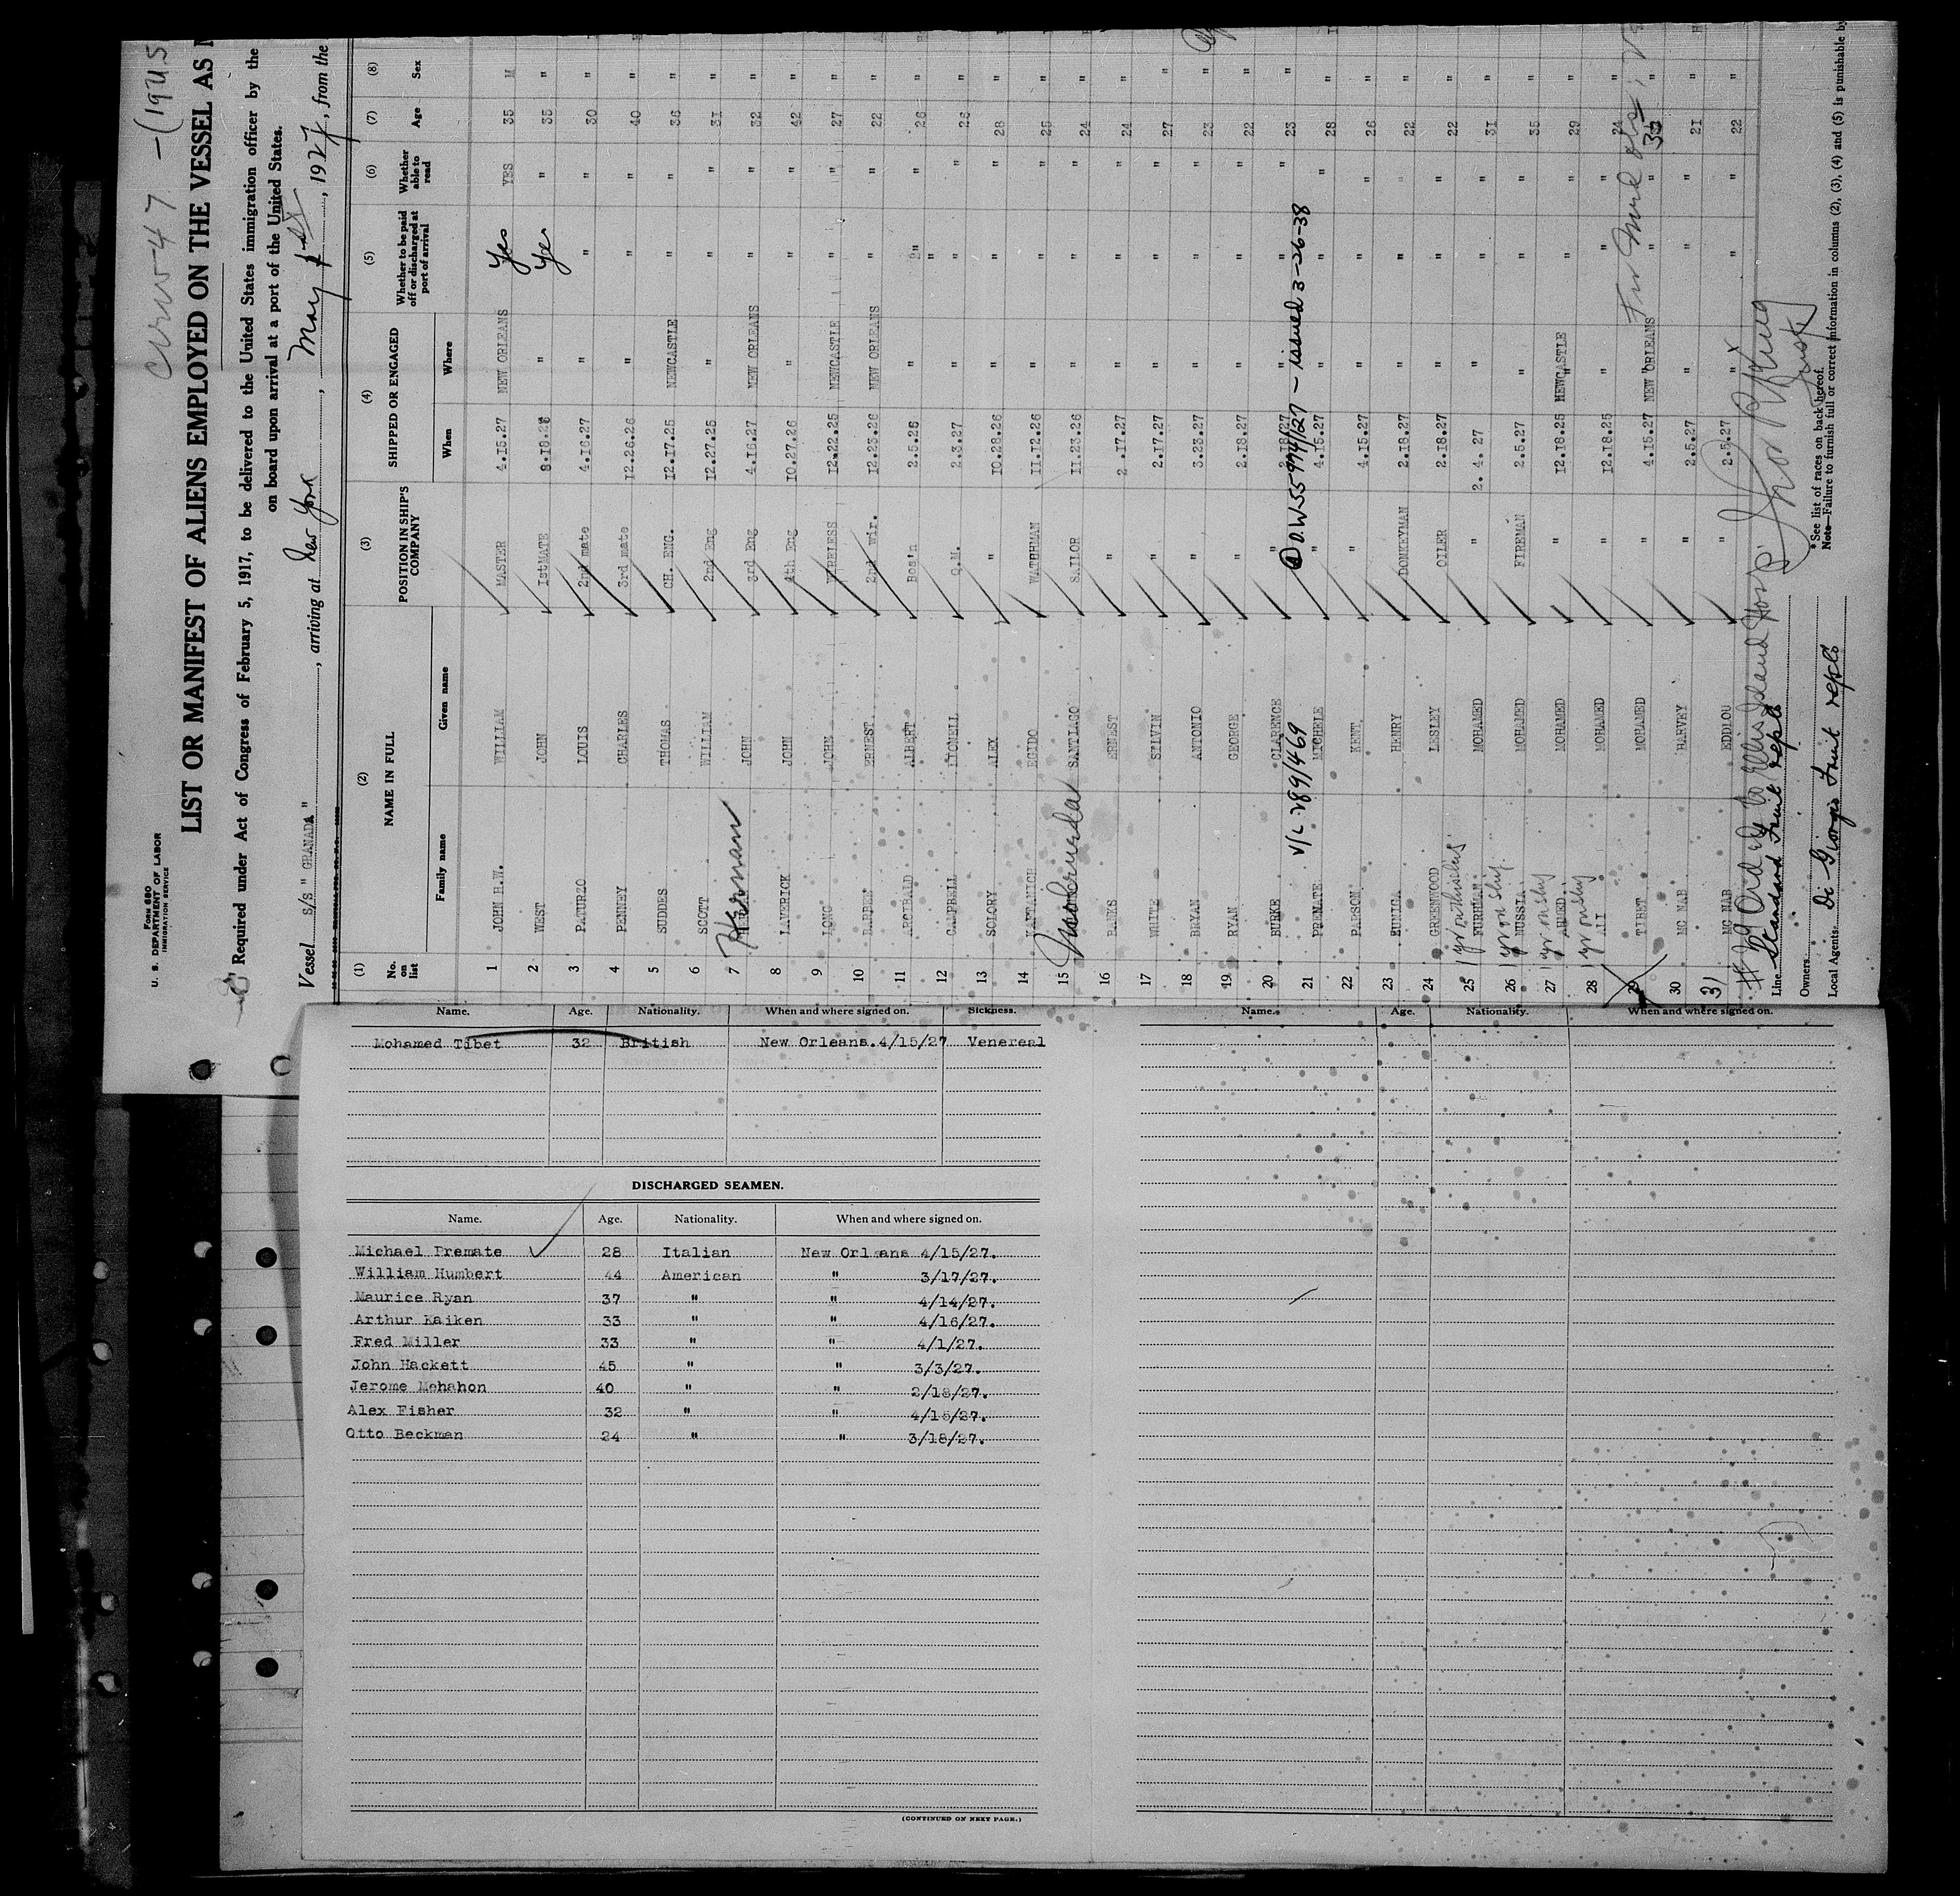 crew 47 – (19 U.S
FORM 680
U. S. DEPARTMENT OF LABOR
IMMIGRATION SERVICE
LIST OR MANIFEST OF ALIENS EMPLOYED ON THE VESSEL AS
Required under Act of Congress of February 5, 1917, to be delivered to the United States immigration officer by the
on board upon arrival at a port of the United States.
Vessel S/S " GRANADA ", arriving at New York, May 1st, 1927, from the
(1) (2) (3) (4) (5) (6) (7) (8)
No. on list NAME IN FULL POSITION IN SHIP'S COMPANY SHIPPED OR ENGAGED Whether to be paid off or discharged at port of arrival Whether able to read Age Sex
Family name Given name When Where
1 JOHN H.W. WILLIAM MASTER 4.15.27 NEW ORLEANS Yes YES 35 M
2 WEST JOHN 1stMATE 8.18.26 " Yes " 35 "
3 PATURZO LOUIS 2nd mate 4.16.27 " " " 30 "
4 PENNEY CHARLES 3rd mate 12.26.26 " " " 40 "
5 SUDDES THOMAS CH. ENG. 12.17.25 NEWCASTLE " " 36 "
6 SCOTT WILLIAM 2nd Eng 12.27.25 " " " 31 "
7 Herman JOHN 3rd Eng 4.16.27 NEW ORLEANS " " 32 "
8 LAVERICK JOHN 4th Eng 10.27.26 " " " 42 "
9 LONG JOHN WIRELESS 12.22.25 NEWCASTLE " " 27 "
10 ERNEST 2nd wir. 12.23.26 NEW ORLEANS " " 22 "
11 ARCIBALD ALBERT Bos'n 2.5.26 " " " 26 "
12 CAMPBELL LIONELL Q.M. 2.3.27 " " " 26 "
13 SOLORY ALEX " 10.28.26 " " " 28 "
14 EGIDO WATHHMAN 11.12.26 " " " 25 "
15 SANTIAGO SAILOR 11.23.26 " " " 24 "
16 BANKS ERNEST " 2.17.27 " " " 24 "
17 WHITE SILVIN " 2.17.27 " " " 27 "
18 BRYAN ANTONIO " 3.23.27 " " " 23 "
19 RYAN GEORGE " 2.18.27 " " " 22 "
20 BURKE CLARENCE " 2.18.27 " " " 23 "
V/L 289/469 D.W. 55 974/127 – issued 3-26-38
21 PREMATE MICHELE " 4.15.27 " " " 28 "
22 PARSON KENT. " 4.15.27 " " " 26 "
23 HENRY DONKEYMAN 2.18.27 " " " 22 "
24 GREENWOOD LESLEY OILER 2.18.27 " " " 22 "
1 yr on this ship
25 MOHAMED " 2.4.27 " " " 31 "
1 yr on ship
26 MOHAMED FIREMAN 2.5.27 " " " 35 "
1 yr on ship
27 AHMED MOHAMED " 12.18.25 NEWCASTLE " " 29 "
1 yr on ship
28 ALI MOHAMED " 12.18.25 " " " 24 "
29 TIBET MOHAMED " 4.15.27 NEW ORLEANS " " 32 "
30 MC NAB HARVEY " 2.5.27 " " " 21 "
31 MC NAB EDDLOU " 2.5.27 " " " 22 "
#29 Ord'd to Ellis Island Hosp.
Line Standard Fruit
Owners
Local Agents Di Giorgio Fruit
*See list of races on back hereof.
Note—Failure to furnish full or correct information in columns (2), (3), (4) and (5) is punishable by
Name. Age. Nationality. When and where signed on. Sickness.
Mohamed Tibet 32 British New Orleans.4/15/27 Venereal
DISCHARGED SEAMEN.
Name. Age. Nationality. When and where signed on.
Michael Premate 28 Italian New Orleans 4/15/27.
William Humbert 44 American " 3/17/27.
Maurice Ryan 37 " " 4/14/27.
Arthur Kaiken 33 " " 4/16/27.
Fred Miller 33 " " 4/1/27.
John Hackett 45 " " 3/3/27.
Jerome Mehahon 40 " " 2/18/27.
Alex Fisher 32 " " 4/15/27.
Otto Beckman 24 " " 3/18/27.
(CONTINUED ON NEXT PAGE.)
Name. Age. Nationality. When and where signed on.